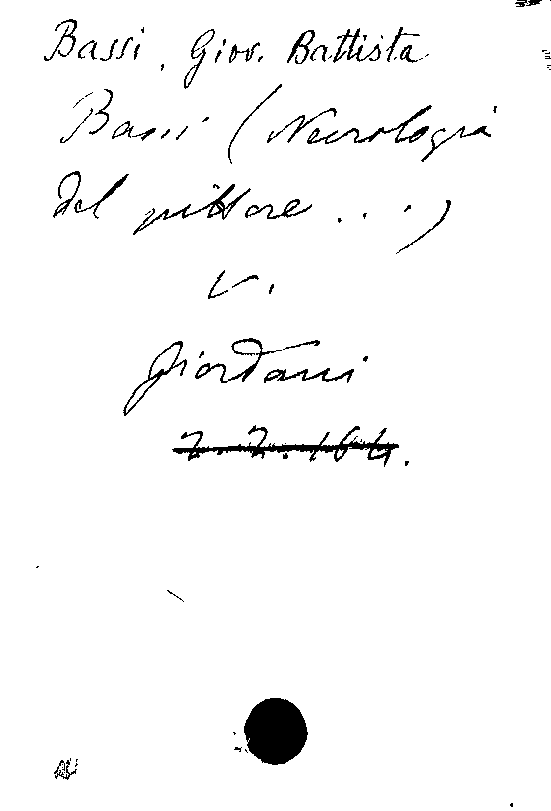 Bassi, Giov. Battista
Bassi (Necrologia
del pittore ...)
v.
Giordani
2.2.164.